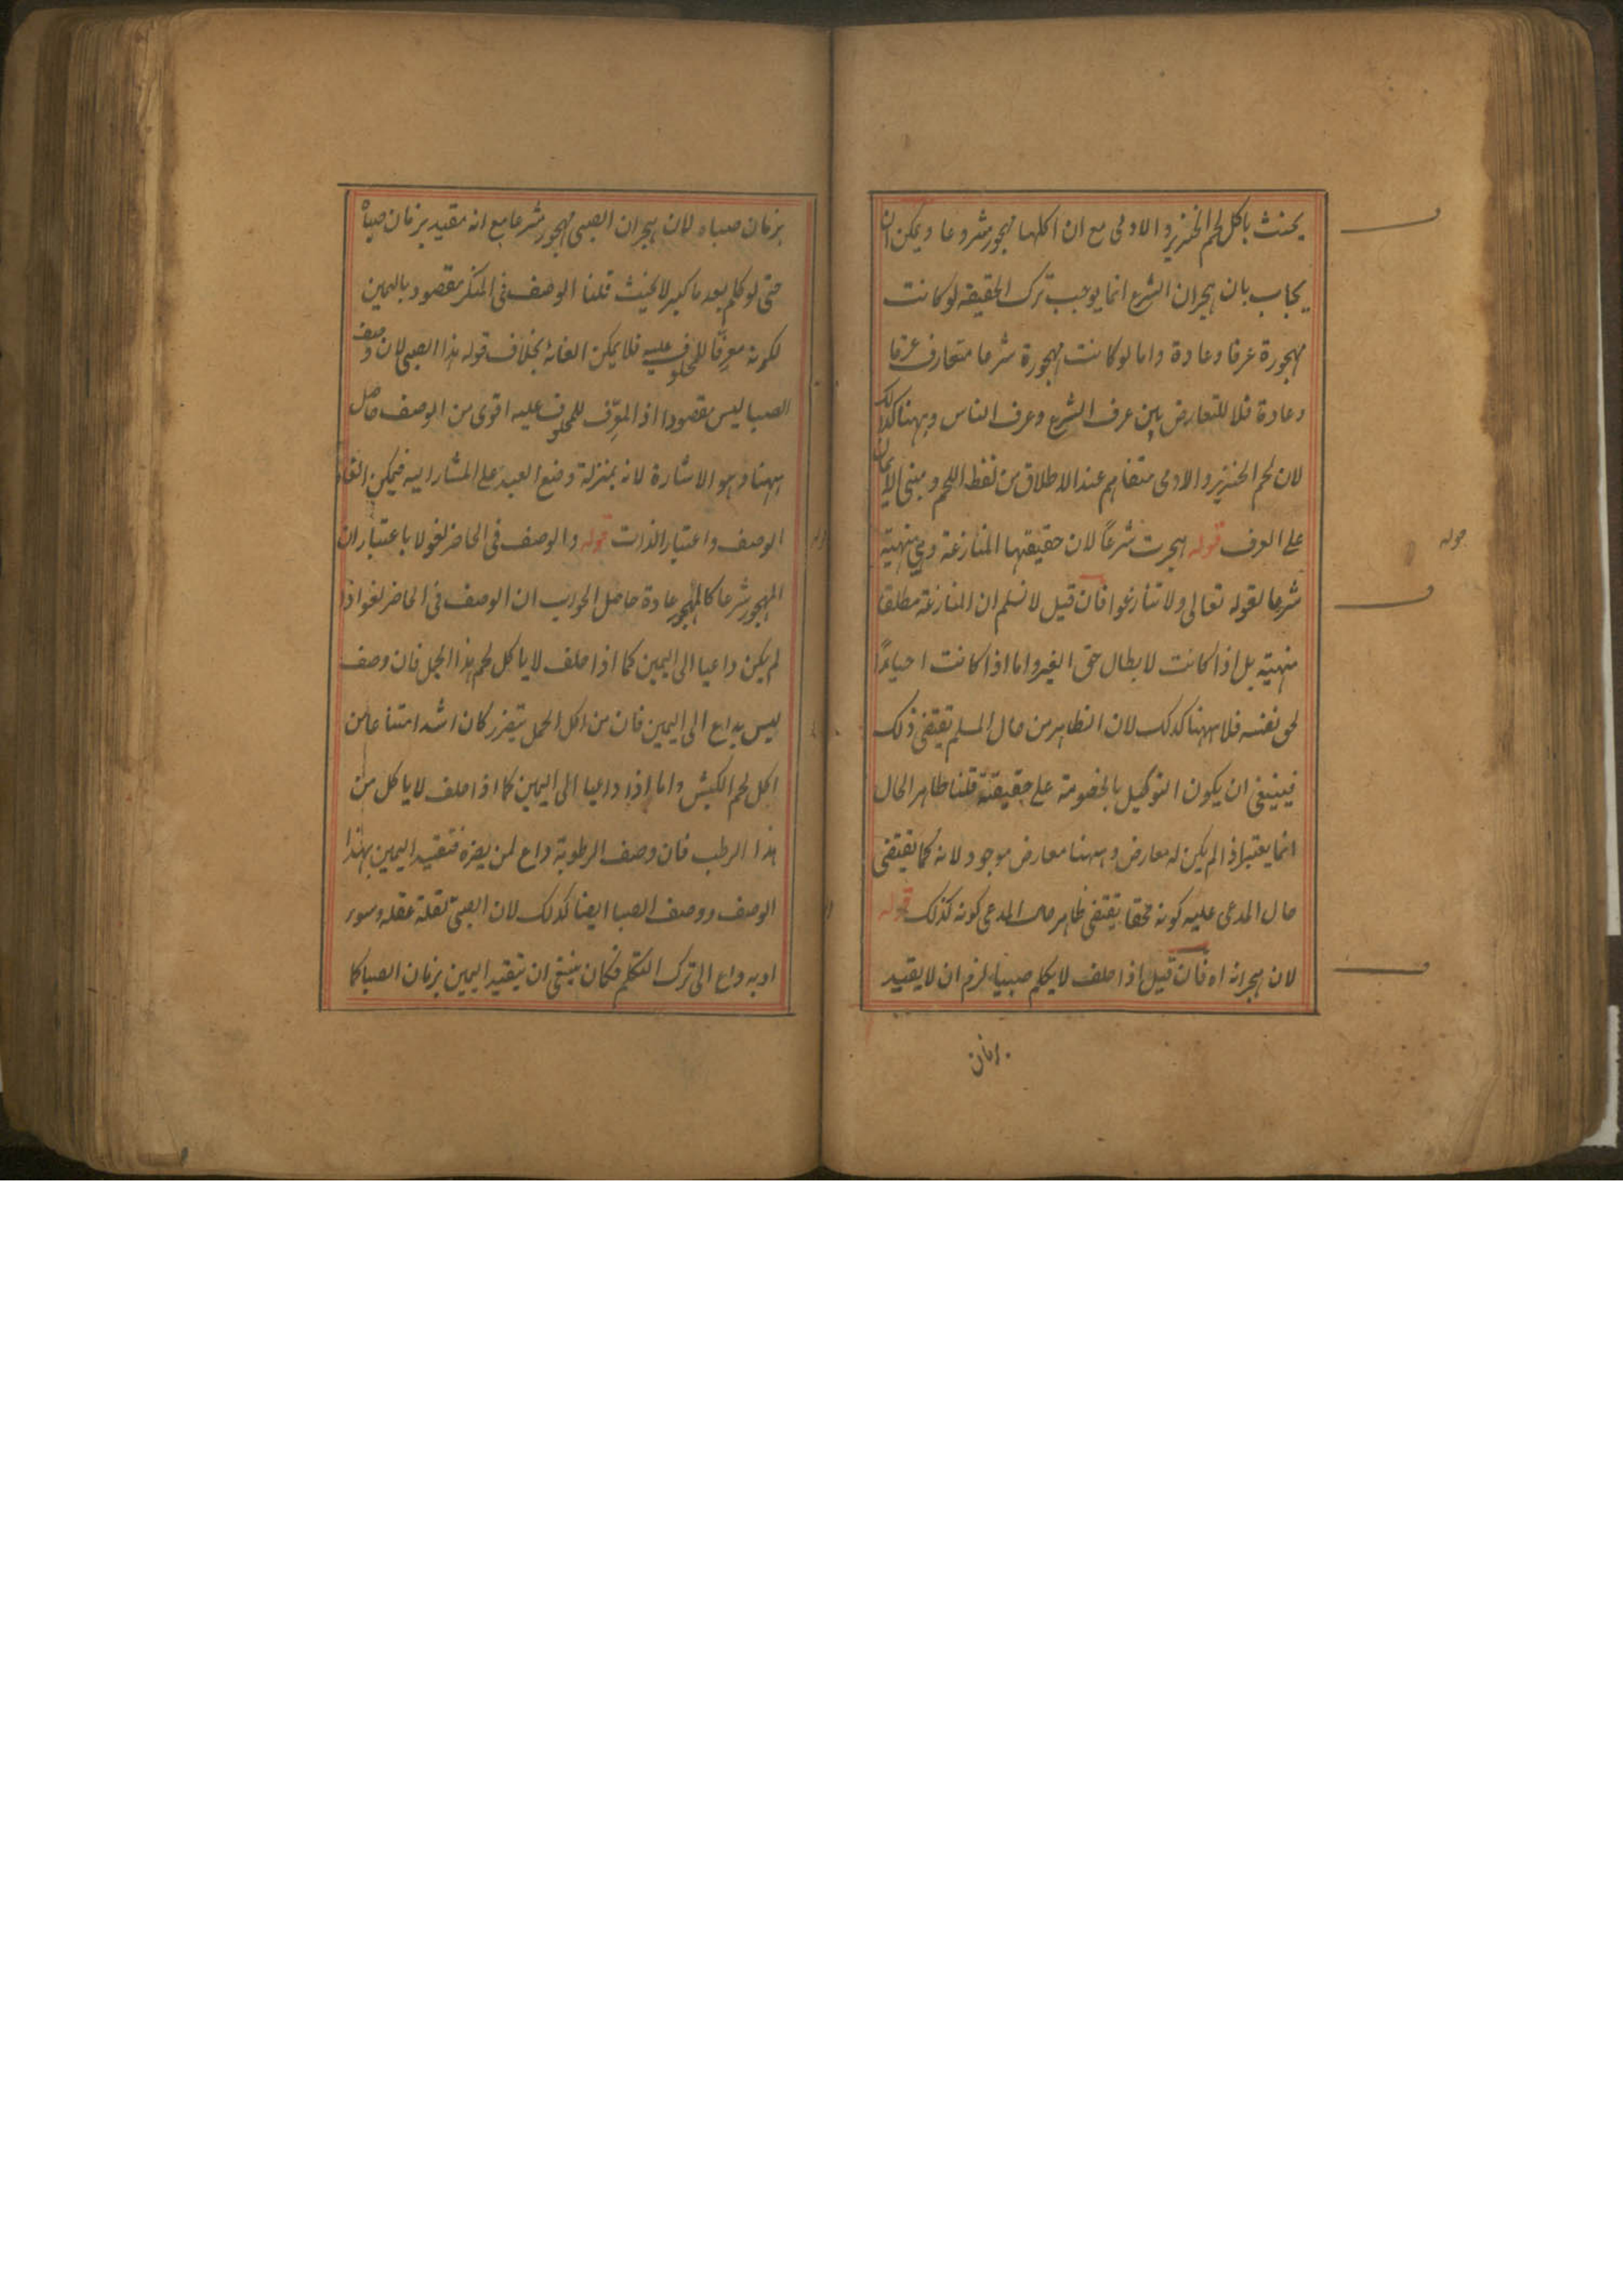 يحنث باكل لحم الخنزير والادمى مع ان اكلها مهجور مشروعا ويمكن ان
يجاب بان هجران الشرع انما يوجب ترك الحقيقة لو كانت
مهجورة عرفا وعادة واما لو كانت مهجورة شرعا متعارف عرفا
وعادة فلا للتعارض بين عرف الشرع وعرف الناس وههنا كذلك
لان لحم الخنزير والادمى متفاهم عند الاطلاق من لفظ اللحم ومبنى الايمان
على العرف قوله هجرت شرعاً لان حقيقتها المنازعة وهي منهية
شرعا لقوله تعالى ولا تنازعوا فان قيل لا نسلم ان المنازعة مطلقا
منهية بل اذا كانت لابطال حق الغير واما اذا كانت احياءً
لحق نفسه فلا ههنا كذلك لان الظاهر من حال المسلم يقتضى ذلك
فينبغى ان يكون التوكيل بالخصومة على حقيقته قلنا ظاهر الحال
انما يعتبر اذا لم يكن له معارض وههنا معارض موجود لانه كما يقتضى
حال المدعى عليه كونه محقا يقتضى ظاهر حال المدعى كونه كذلك قوله
لان هجرانه اه فان قيل اذا حلف لا يكلم صبيا لزم ان لا يقيد
بزمان
قوله
بزمان صباه لان هجران الصبى مهجور شرعا مع انه مقيد بزمان صباه
حتى لو كلم بعد ما كبر لا يحنث قلنا الوصف فى المنكر مقصود باليمين
لكونه معرفا للمحلوف عليه فلا يمكن الغائه بخلاف قوله هذا الصبى لان وصف
الصبا ليس مقصودا اذ المعرِّف للمحلوف عليه اقوى من الوصف حاصل
ههنا وهو الاشارة لانه بمنزلة وضع اليد على المشار اليه فيمكن الغاء
الوصف واعتبار الذات قوله والوصف فى الحاضر لغو لا باعتبار ان
المهجور شرعا كالمهجور عادة حاصل الجواب ان الوصف فى الحاضر لغو اذا
لم يكن داعيا الى اليمين كما اذا حلف لا ياكل لحم هذا الحمل فان وصف
ليس بداع الى اليمين فان من اكل الحمل يتضرر كان اشد امتناعا من
اكل لحم الكبش واما اذا داعيا الى اليمين كما اذا حلف لا ياكل من
هذا الرطب فان وصف الرطوبة داع لمن يضره فتقيد اليمين بهذا
الوصف ووصف الصبا ايضا كذلك لان الصبى لقلة عقله وسوء
ادبه داع الى ترك التكلم فكان ينبغى ان يتقيد اليمين بزمان الصبا كما